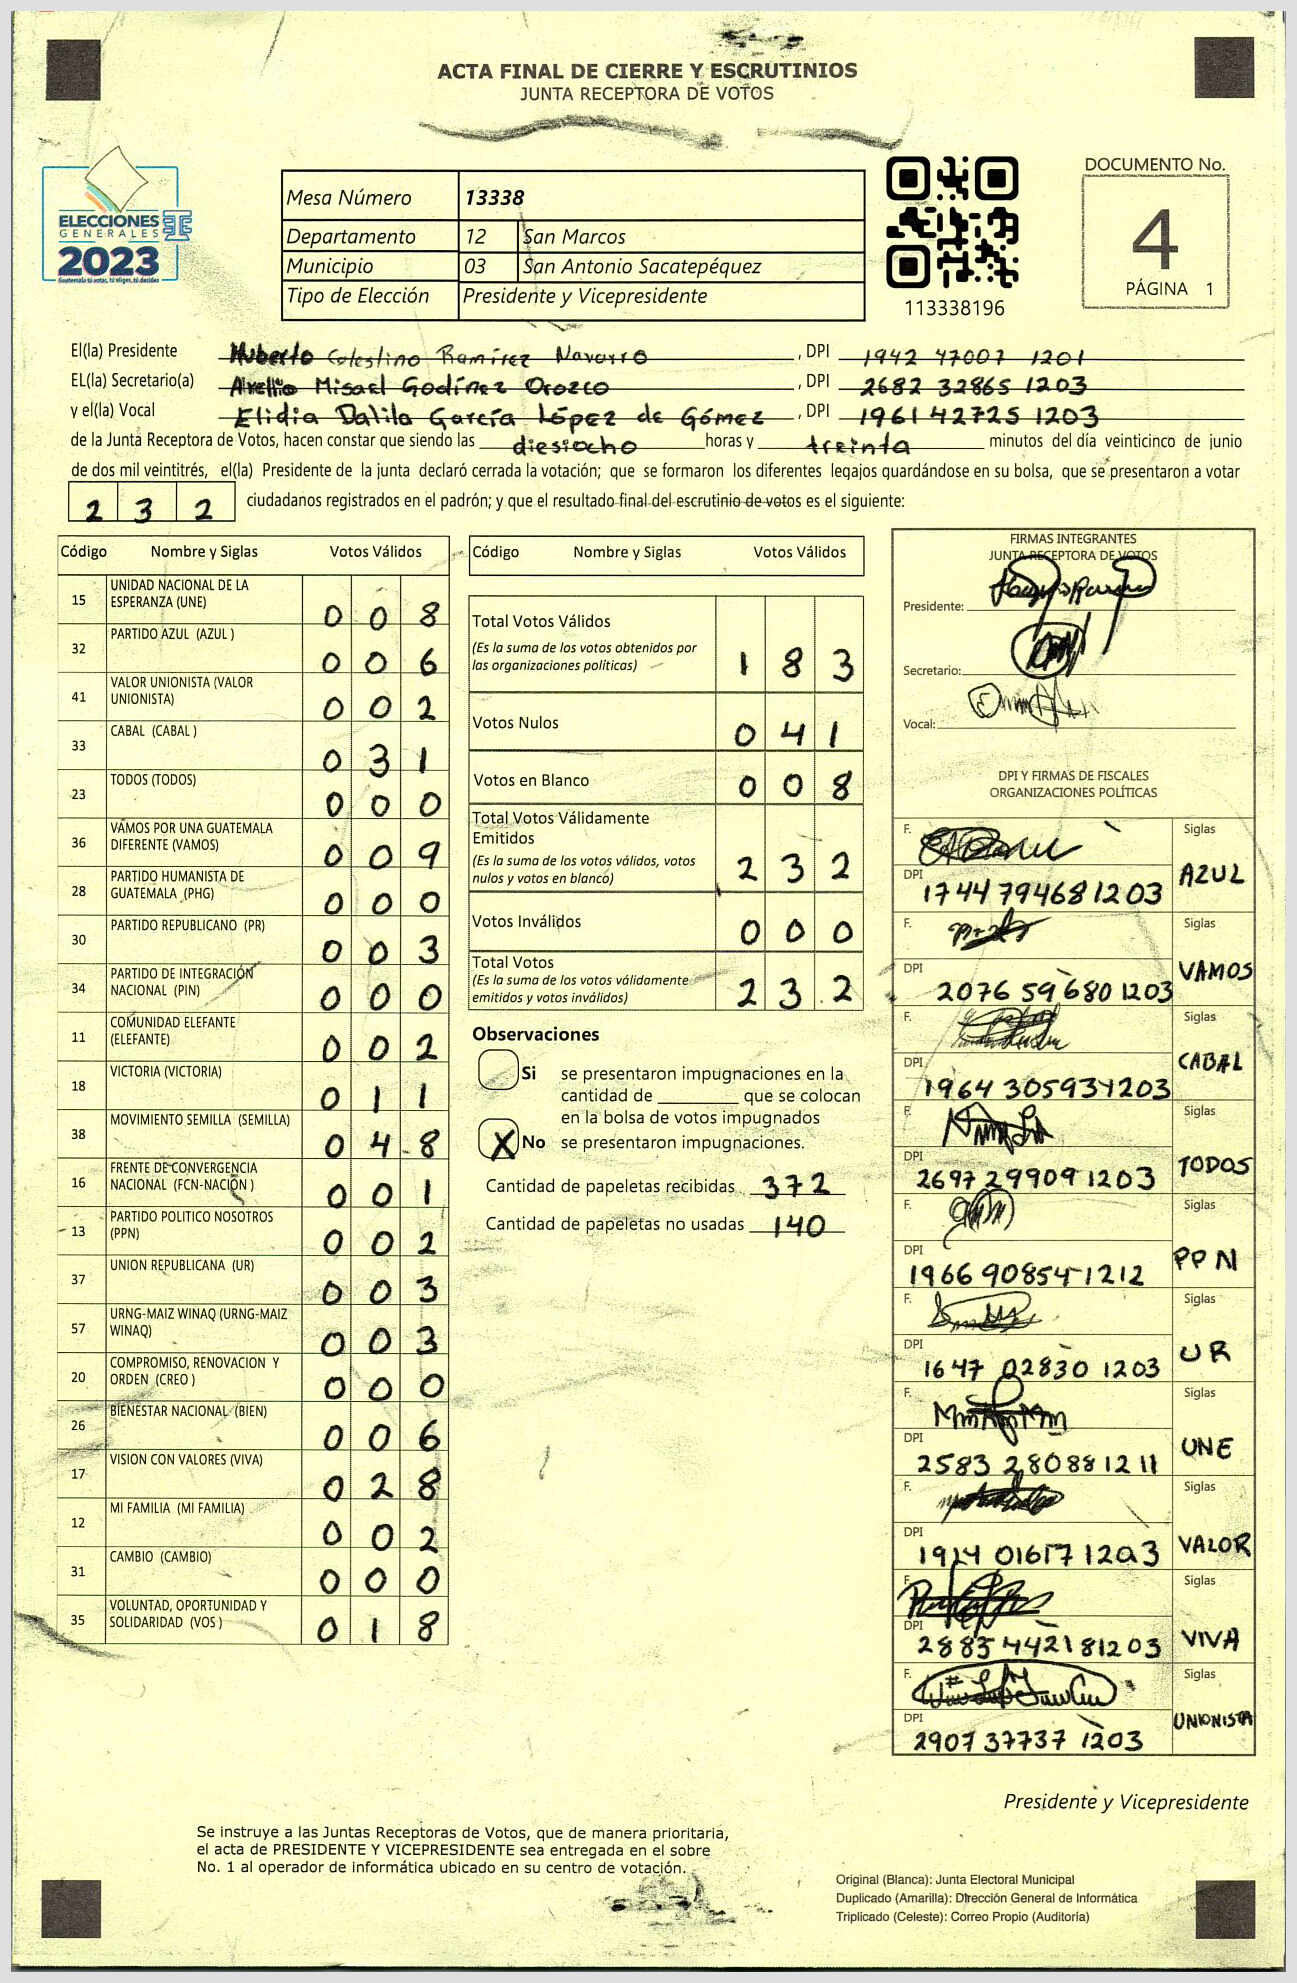 ACTA FINAL DE CIERRE Y ESCRUTINIOS
JUNTA RECEPTORA DE VOTOS
ELECCIONES
GENERALES
2023
Guatemala tú votas, tú eliges, tú decides
Mesa Número 13338
Departamento 12 San Marcos
Municipio 03 San Antonio Sacatepéquez
Tipo de Elección Presidente y Vicepresidente
113338196
DOCUMENTO No.
4
PÁGINA 1
El(la) Presidente Huberto Celestino Ramírez Navarro , DPI 1942 47007 1201
EL(la) Secretario(a) Misael Godínez Orozco , DPI 2682 32865 1203
y el(la) Vocal Elidia Dalila García López de Gómez , DPI 1961 42725 1203
de la Junta Receptora de Votos, hacen constar que siendo las diesiocho horas y treinta minutos del día veinticinco de junio
de dos mil veintitrés, el(la) Presidente de la junta declaró cerrada la votación; que se formaron los diferentes legajos guardándose en su bolsa, que se presentaron a votar
2 3 2 ciudadanos registrados en el padrón; y que el resultado final del escrutinio de votos es el siguiente:
Código Nombre y Siglas Votos Válidos
15 UNIDAD NACIONAL DE LA
ESPERANZA (UNE) 0 0 8
32 PARTIDO AZUL (AZUL ) 0 0 6
41 VALOR UNIONISTA (VALOR
UNIONISTA) 0 0 2
33 CABAL (CABAL ) 0 3 1
23 TODOS (TODOS) 0 0 0
36 VAMOS POR UNA GUATEMALA
DIFERENTE (VAMOS) 0 0 9
28 PARTIDO HUMANISTA DE
GUATEMALA (PHG) 0 0 0
30 PARTIDO REPUBLICANO (PR) 0 0 3
34 PARTIDO DE INTEGRACIÓN
NACIONAL (PIN) 0 0 0
11 COMUNIDAD ELEFANTE
(ELEFANTE) 0 0 2
18 VICTORIA (VICTORIA) 0 1 1
38 MOVIMIENTO SEMILLA (SEMILLA) 0 4 8
16 FRENTE DE CONVERGENCIA
NACIONAL (FCN-NACIÓN ) 0 0 1
13 PARTIDO POLITICO NOSOTROS
(PPN) 0 0 2
37 UNION REPUBLICANA (UR) 0 0 3
57 URNG-MAIZ WINAQ (URNG-MAIZ
WINAQ) 0 0 3
20 COMPROMISO, RENOVACION Y
ORDEN (CREO ) 0 0 0
26 BIENESTAR NACIONAL (BIEN) 0 0 6
17 VISION CON VALORES (VIVA) 0 2 8
12 MI FAMILIA (MI FAMILIA) 0 0 2
31 CAMBIO (CAMBIO) 0 0 0
35 VOLUNTAD, OPORTUNIDAD Y
SOLIDARIDAD (VOS ) 0 1 8
Código Nombre y Siglas Votos Válidos
Total Votos Válidos
(Es la suma de los votos obtenidos por
las organizaciones políticas) 1 8 3
Votos Nulos 0 4 1
Votos en Blanco 0 0 8
Total Votos Válidamente
Emitidos
(Es la suma de los votos válidos, votos
nulos y votos en blanco) 2 3 2
Votos Inválidos 0 0 0
Total Votos
(Es la suma de los votos válidamente
emitidos y votos inválidos) 2 3 2
Observaciones
Si se presentaron impugnaciones en la
cantidad de ________ que se colocan
en la bolsa de votos impugnados
X No se presentaron impugnaciones.
Cantidad de papeletas recibidas 372
Cantidad de papeletas no usadas 140
FIRMAS INTEGRANTES
JUNTA RECEPTORA DE VOTOS
Presidente:
Secretario:
Vocal:
DPI Y FIRMAS DE FISCALES
ORGANIZACIONES POLÍTICAS
F. Siglas
DPI 1744 79468 1203 AZUL
F. Siglas
DPI 2076 59680 1203 VAMOS
F. Siglas
DPI 1964 30593 1203 CABAL
F. Siglas
DPI 2697 29909 1203 TODOS
F. Siglas
DPI 1966 90854 1212 PPN
F. Siglas
DPI 1647 02830 1203 UR
F. Siglas
DPI 2583 28088 1211 UNE
F. Siglas
DPI VALOR
F. Siglas
DPI 2883 44218 1203 VIVA
F. Siglas
DPI 2907 37737 1203 UNIONISTA
Presidente y Vicepresidente
Se instruye a las Juntas Receptoras de Votos, que de manera prioritaria,
el acta de PRESIDENTE Y VICEPRESIDENTE sea entregada en el sobre
No. 1 al operador de informática ubicado en su centro de votación.
Original (Blanca): Junta Electoral Municipal
Duplicado (Amarilla): Dirección General de Informática
Triplicado (Celeste): Correo Propio (Auditoría)